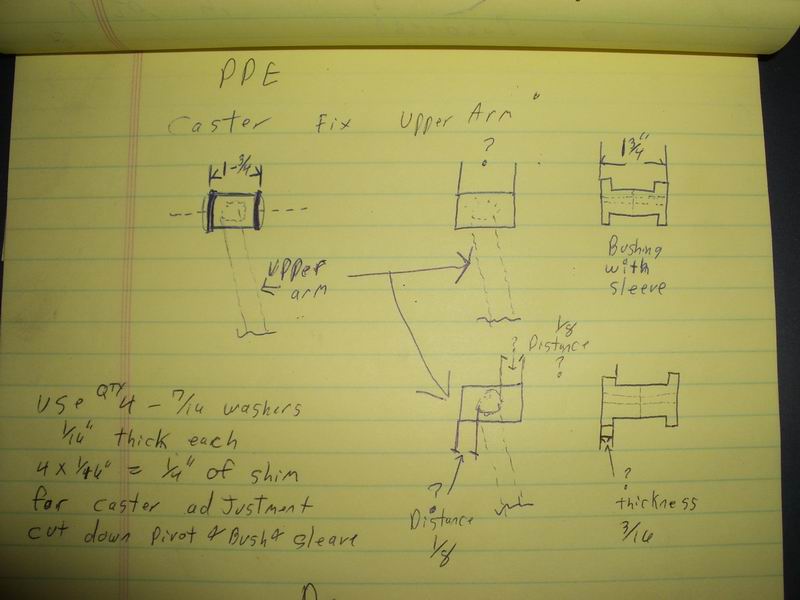 PPE
Caster Fix Upper Arm
1-3/4
?
1 3/4"
UPPer
arm
Bushing
with
sleeve
1/8
? Distance
?
USe QTY 4 - 7/16 washers
1/16" thick each
4 x 1/16" = 1/4" of shim
for caster adJustment
cut down Pivot & Bush & sleave
?
Distance
1/8
?
thickness
3/16